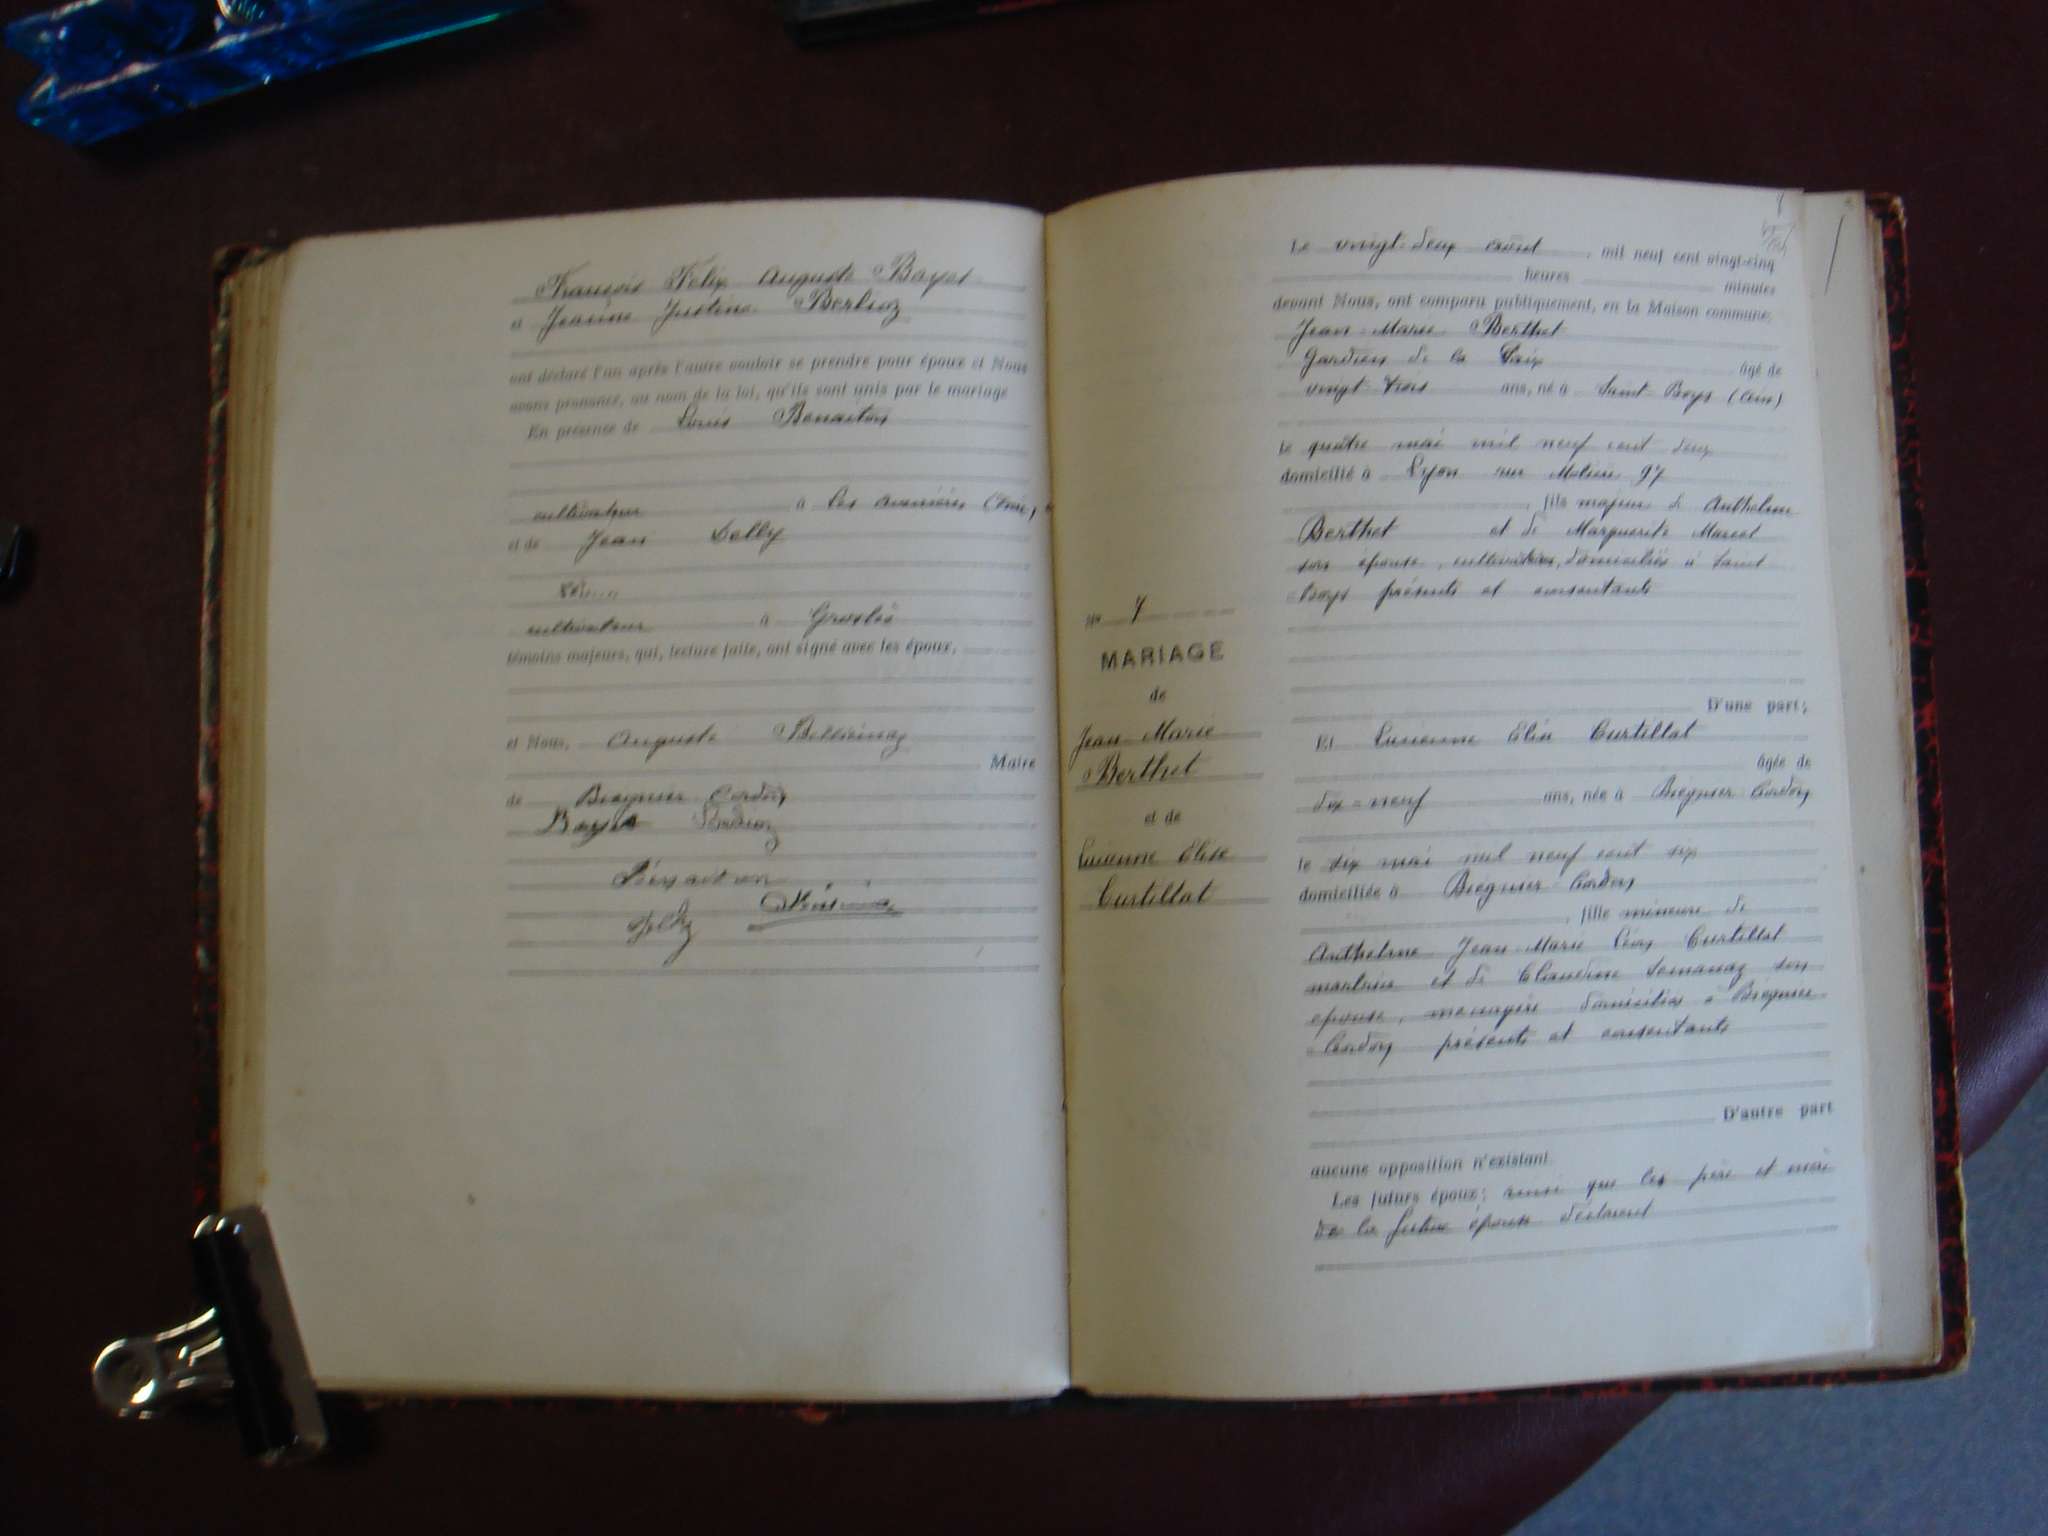 François Félix Auguste Bayet
et Jeanne Justine Berlioz
ont déclaré l'un après l'autre vouloir se prendre pour époux et Nous
avons prononcé, au nom de la loi, qu'ils sont unis par le mariage
En présence de Louis Benaiton
cultivateur à les avenières (Isère)
et de Jean Jolly
cultivateur à Groslée
témoins majeurs, qui, lecture faite, ont signé avec les époux,
et Nous, Auguste
Maire
de Brégnier Cordon
Bayet Berlioz
Jolly
Le vingt-deux août, mil neuf cent vingt-cinq
heures minutes
devant Nous, ont comparu publiquement, en la Maison commune,
Jean-Marie Berthet
Gardien de la Paix âgé de
vingt-trois ans, né à Saint-Boys (Ain)
le quatre mai mil neuf cent deux
domicilié à Lyon rue Molière 97
, fils majeur de Anthelme
Berthet et de Marguerite Marcel
son épouse, cultivateurs, domiciliés à Saint
Boys présents et consentants
D'une part;
Et Lucienne Elise Curtillat
âgée de
dix-neuf ans, née à Brégnier Cordon
le dix mai mil neuf cent six
domiciliée à Brégnier-Cordon
, fille mineure de
Anthelme Jean-Marie Léon Curtillat
et de Claudine son
épouse, ménagère domiciliés à Brégnier
-Cordon présents et consentants
D'autre part
aucune opposition n'existant
Les futurs époux; ainsi que les père et mère
de la future épouse déclarent
No 7
MARIAGE
de
Jean-Marie
Berthet
et de
Lucienne Elise
Curtillat